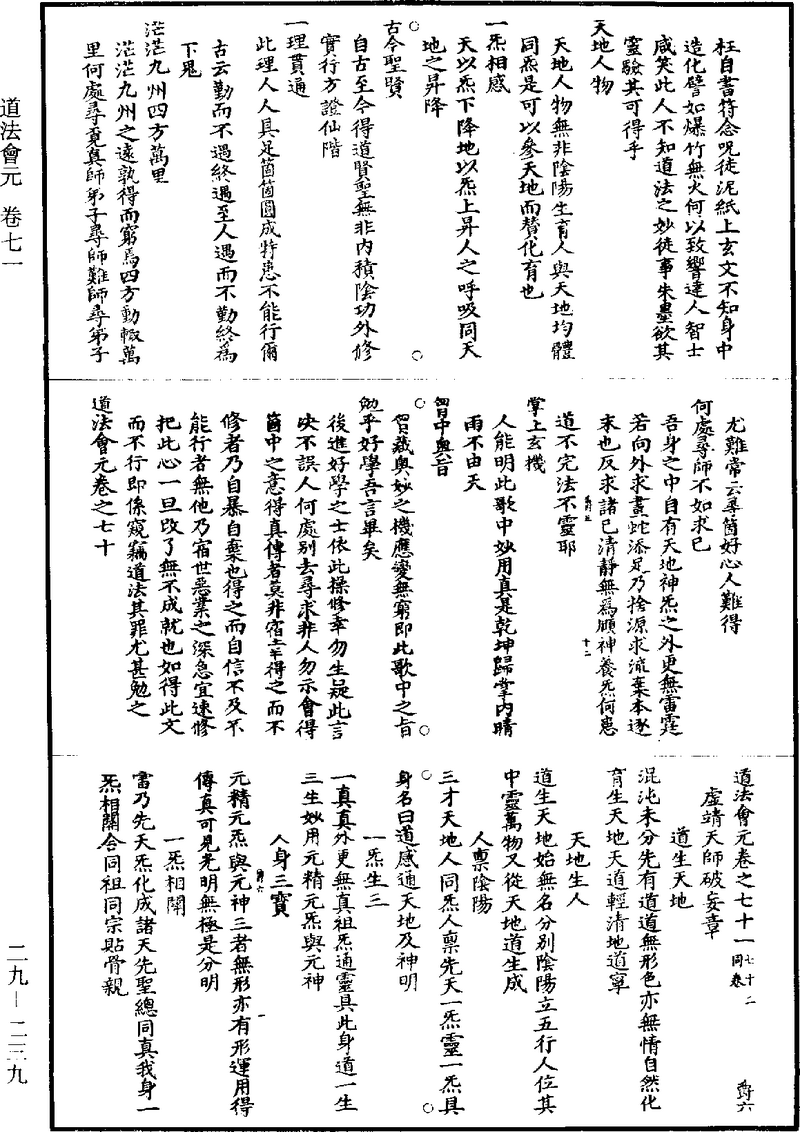 道法會元 卷七一
枉自書符念呪徒泥紙上玄文不知身中
造化譬如爆竹無火何以致響達人智士
咸笑此人不知道法之妙徒事朱墨欲其
靈驗其可得乎
天地人物
天地人物無非陰陽生育人與天地均體
同炁是可以參天地而贊化育也
一炁相感
天以炁下降地以炁上昇人之呼吸同天
地之昇降
古今聖賢
自古至今得道賢聖無非內積陰功外修
實行方證仙階
一理貫通
此理人人具足箇箇圓成特患不能行爾
古云勤而不遇終遇至人遇而不勤終爲
下鬼
茫茫九州四方萬里
茫茫九州之遠孰得而窮焉四方動輒萬
里何處尋覓真師弟子尋師難師尋弟子
尤難常云尋箇好心人難得
何處尋師不如求已
吾身之中自有天地神炁之外更無雷霆
若向外求畫蛇添足乃捨源求流棄本逐
末也反求諸已清靜無爲頤神養炁何患
道不完法不靈耶
掌上玄機
人能明此歌中妙用真是乾坤歸掌內晴
雨不由天
胷中奧旨
胷藏奧妙之機應變無窮即此歌中之旨
勉乎好學吾言畢矣
後進好學之士依此操修幸勿生疑此言
決不誤人何處別去尋求非人勿示會得
箇中之意得真傳者莫非宿幸得之而不
修者乃自暴自棄也得之而自信不及不
能行者無他乃宿世惡業之深急宜速修
把此心一旦改了無不成就也如得此文
而不行即係窺竊道法其罪尤甚勉之
道法會元卷之七十
十二
道法會元卷之七十一 七十二同卷 爵六
虛靖天師破妄章
道生天地
混沌未分先有道道無形色亦無情自然化
育生天地天道輕清地道寧
天地生人
道生天地始無名分別陰陽立五行人位其
中靈萬物又從天地道生成
人禀陰陽
三才天地人同炁人禀先天一炁靈一炁具
身名曰道感通天地及神明
一炁生三
一真真外更無真祖炁通靈具此身道一生
三生妙用元精元炁與元神
人身三寶
元精元炁與元神三者無形亦有形運用得
爵六 一
傳真可見光明無極是分明
一炁相關
雷乃先天炁化成諸天先聖總同真我身一
炁相關合同祖同宗貼骨親
二九—二三九